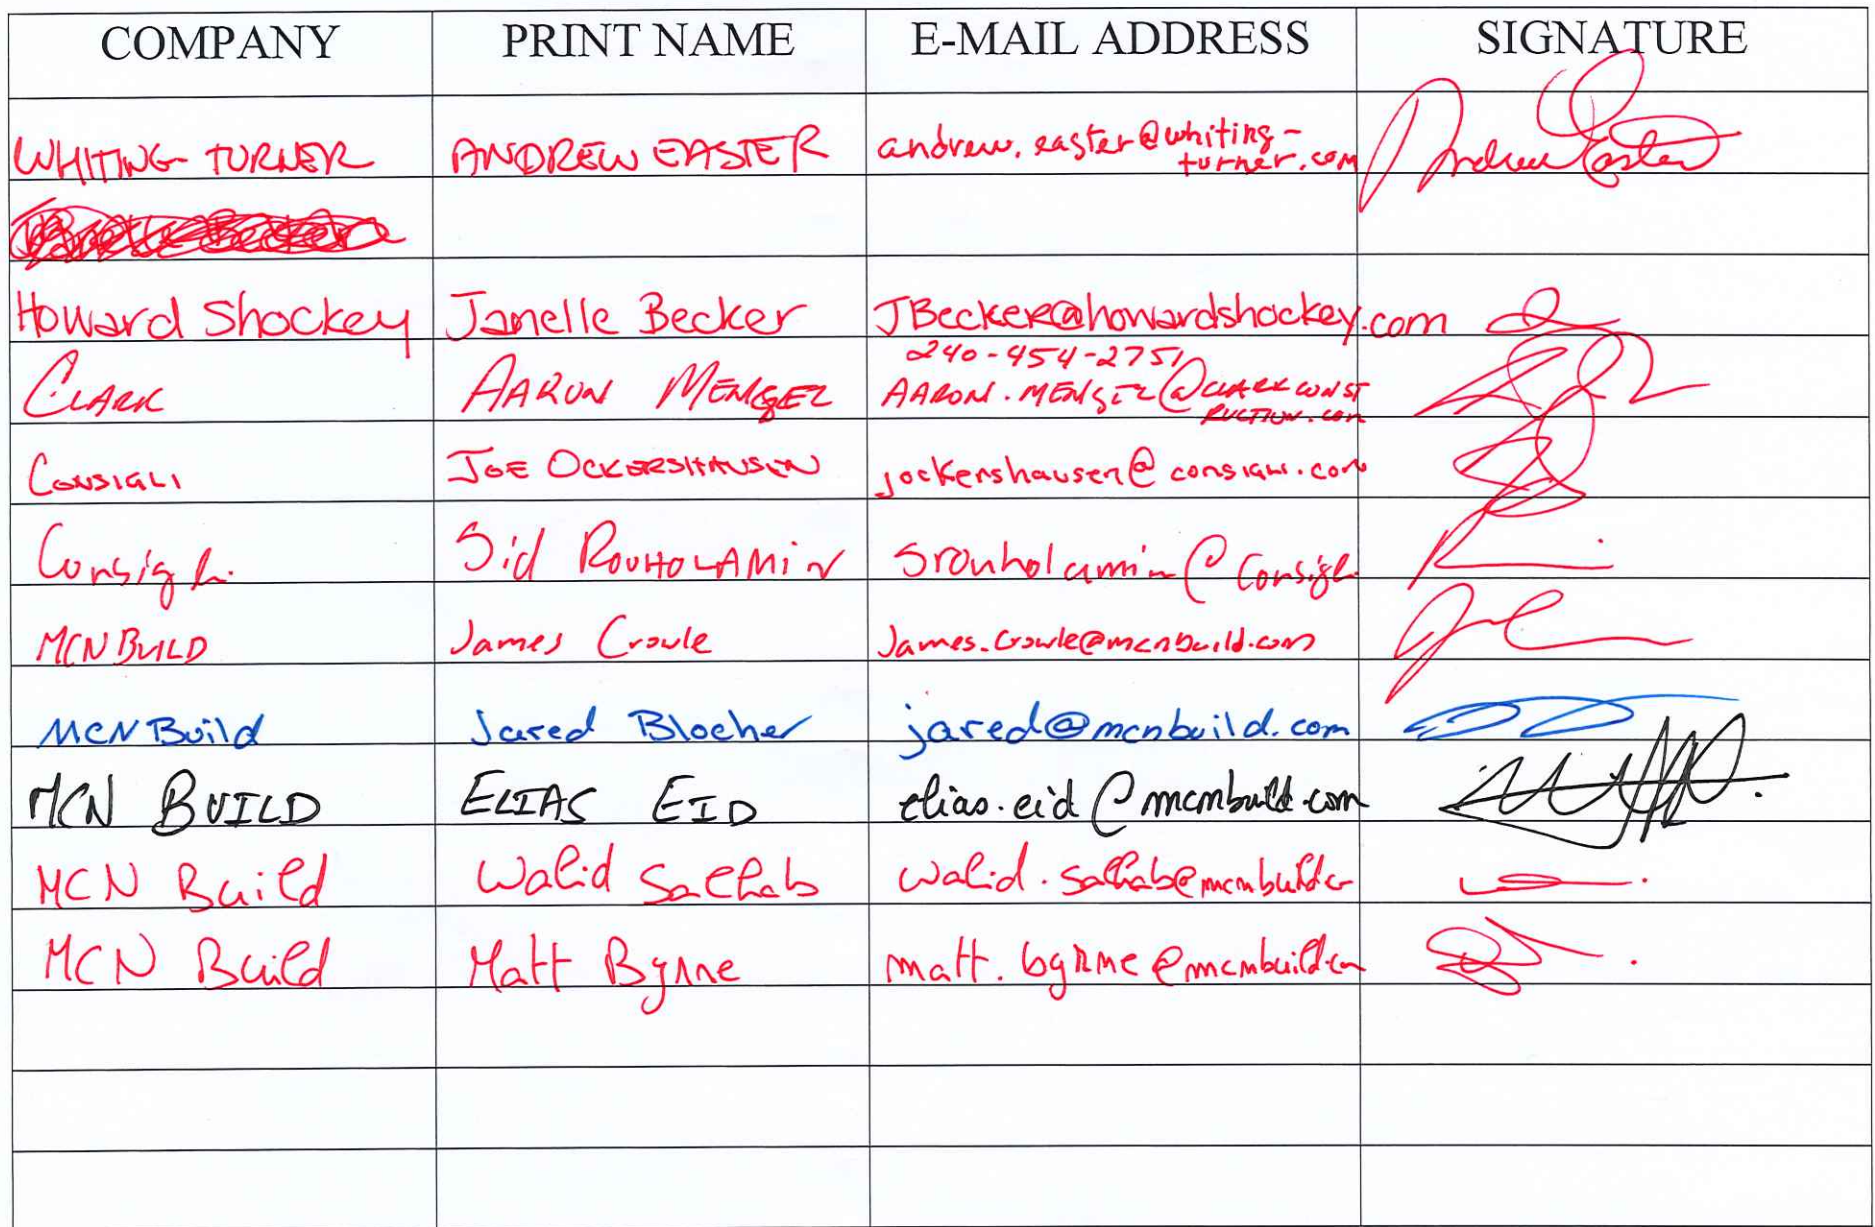 COMPANY PRINT NAME E-MAIL ADDRESS SIGNATURE
WHITING-TURNER ANDREW EASTER andrew.easter@whiting-
turner.com Andrew Easter
Howard Shockey Janelle Becker JBecker@howardshockey.com
240-454-2751
CLARK AARON MENGEL AARON.MENGEL@CLARKCONST
RUCTION.com
CONSIGLI JOE OCKERSHAUSEN jockershausen@consigli.com
Consigli Sid ROUHOLAMiN srouholamin@Consigli
MCNBUILD James Crowle James.Crowle@mcnbuild.com
MCNBuild Jared Blocher jared@mcnbuild.com
MCN BUILD ELIAS EID elias.eid@mcnbuild.com
MCN Build Walid Salhab walid.salhab@mcnbuild.co
MCN Build Matt Byrne matt.byrne@mcnbuild.com